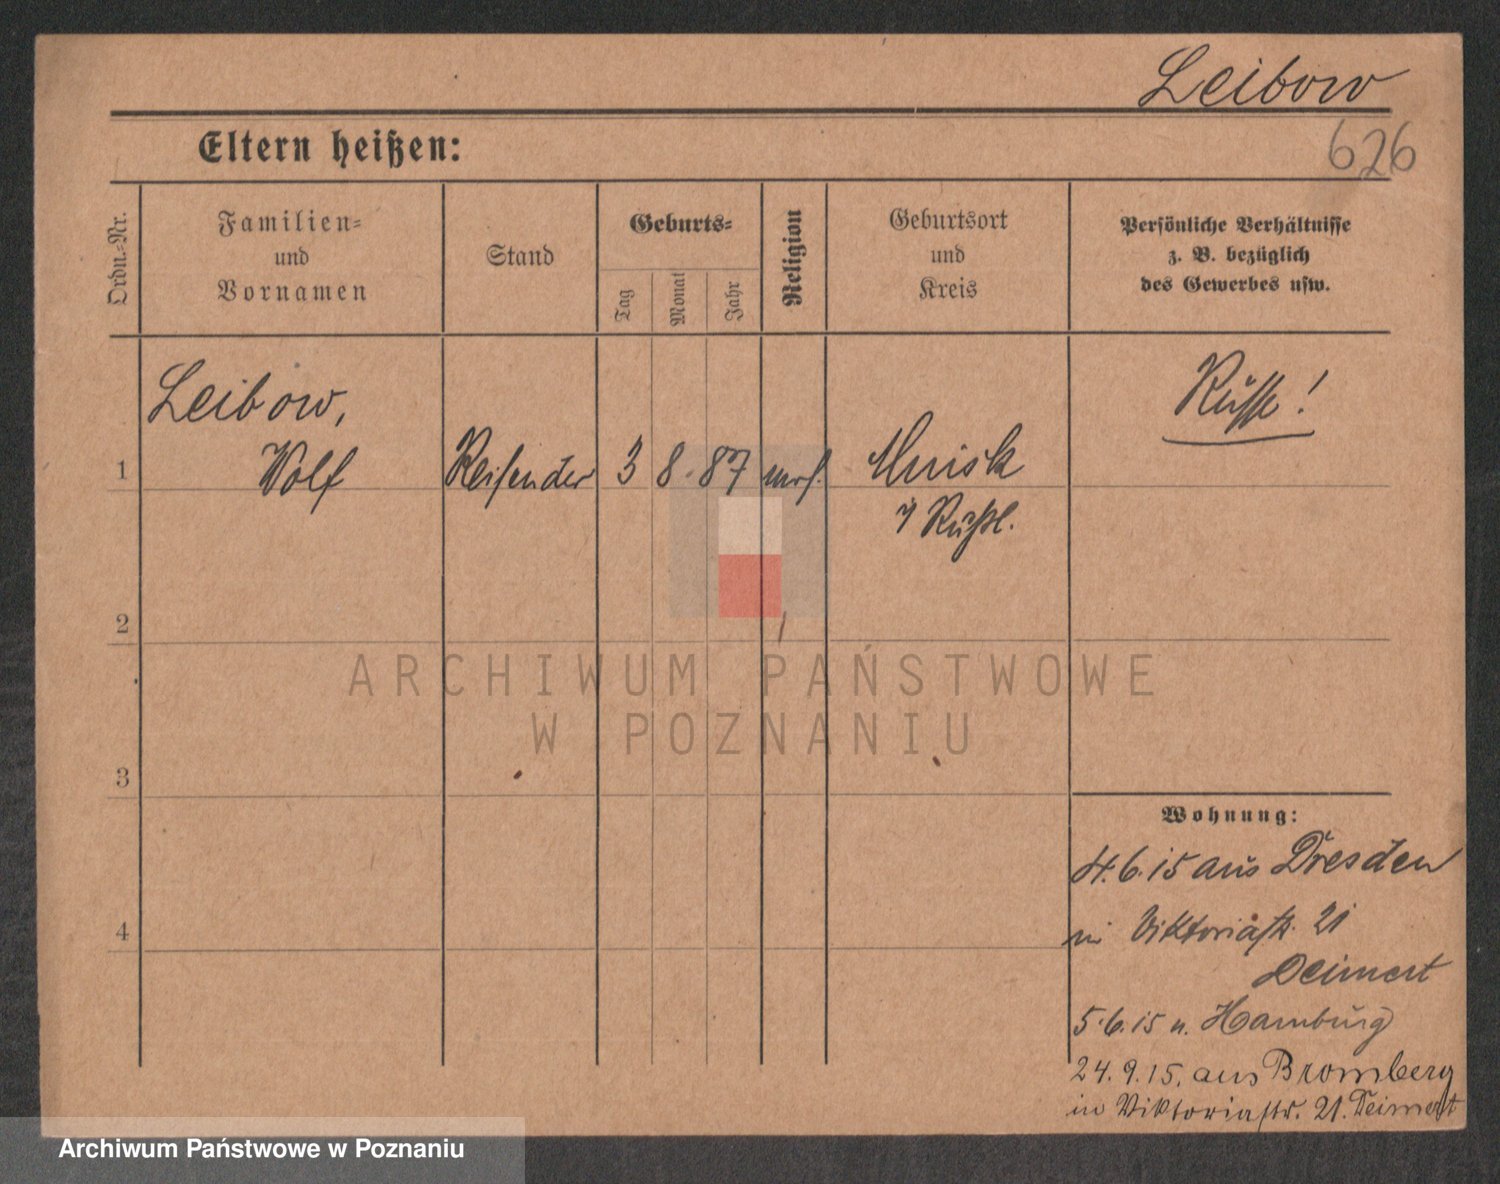 Leibow
626
Eltern heißen:
Ordn.-Nr.
Familien-
und
Vornamen
Stand
Geburts-
Tag
Monat
Jahr
Religion
Geburtsort
und
Kreis
Persönliche Verhältnisse
z. B. bezüglich
des Gewerbes usw.
Leibow,
Russe!
1 Wolf Reisender 3 8. 87 mos.
i/ Rußl.
2
3
4
Wohnung:
4.6.15 aus Dresden
in Viktoriastr. 21
Deimert
5.6.15 n. Hamburg
24.9.15. aus Bromberg
in Viktoriastr. 21. Deimert
ARCHIWUM PAŃSTWOWE
W POZNANIU
Archiwum Państwowe w Poznaniu